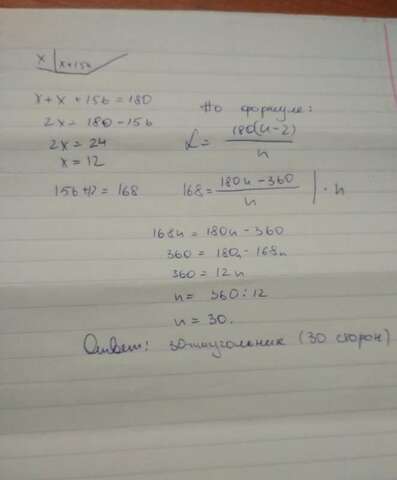 x x+156
x + x + 156 = 180
2x = 180 - 156
2x = 24
x = 12
156+12 = 168
По формуле:
α = 180(n-2) / n
168 = 180n - 360 / n | · n
168n = 180n - 360
360 = 180n - 168n
360 = 12n
n = 360 : 12
n = 30.
Ответ: 30-тиугольник (30 сторон)